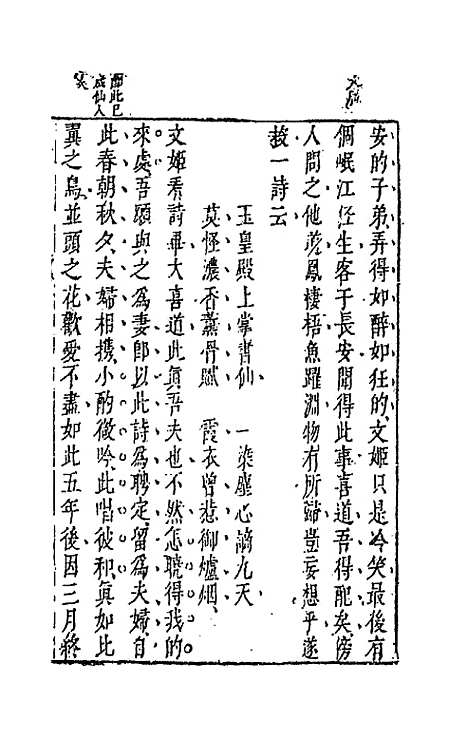 安的子弟弄得如醉如狂的文姬只是冷笑最後有
個岷江任生客于長安聞得此事喜道吾得配矣傍
人問之他道鳳棲梧魚躍淵物有所歸豈妄想乎遂
投一詩云
玉皇殿上掌書仙　一染塵心謫九天
莫怪濃香薰骨膩　霞衣曾惹御爐烟
文姬看詩畢大喜道此眞吾夫也不然怎曉得我的
來處吾願與之爲妻卽以此詩爲聘定留爲夫婦自
此春朝秋夕夫婦相攜小酌微吟此唱彼和眞如比
翼之鳥並頭之花歡愛不盡如此五年後因三月終
卽此已
成仙人